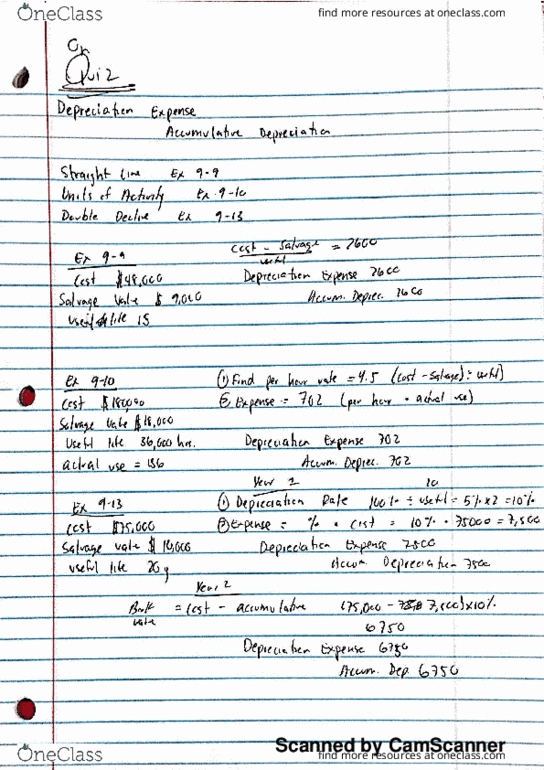 OneClass
find more resources at oneclass.com
On
Quiz
Depreciation Expense
Accumulative Depreciation
Straight Line Ex 9-9
Units of Activity Ex 9-10
Double Decline Ex 9-13
Ex 9-9
Cost - Salvage = 2600
useful
Cost $48,000
Depreciation Expense 2600
Salvage Value $ 9,000
Accum. Deprec. 2600
Useful life 15
Ex 9-10
① Find per hour rate = 4.5 (Cost - Salvage) ÷ useful
Cost $180000
② Expense = 702 (per hour • actual use)
Salvage Value $18,000
Useful life 36,000 hrs.
Depreciation Expense 702
actual use = 156
Accum. Deprec. 702
Year 1
Ex 9-13
① Depreciation Rate 100% ÷ useful = 5% x 2 = 10%
Cost $75,000
② Expense = % • Cost = 10% • 75000 = 7,500
Salvage value $ 10,000
Depreciation Expense 7500
useful life 20 y
Accum Depreciation 7500
Year 2
Book value = Cost - accumulative (75,000 - 7,500) x 10%
6750
Depreciation Expense 6750
Accum. Dep 6750
Scanned by CamScanner
OneClass
find more resources at oneclass.com